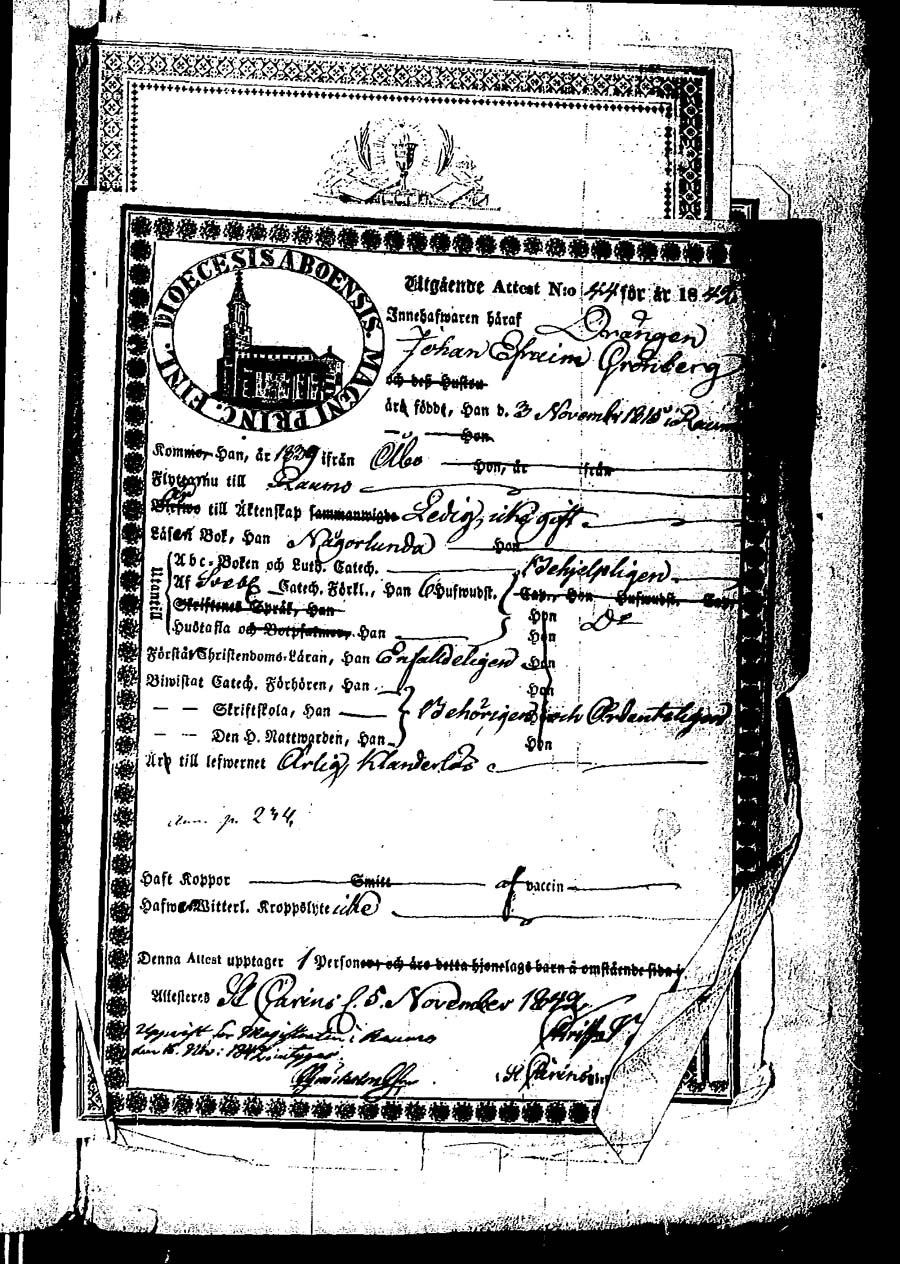 DIOECESIS ABOENSIS. MAGNI PRINC. FINL.
Utgående Attest N:o 44 för år 1842
Innehafwaren häraf Drängen
Johan Efraim Grönberg
och deß Hustru
äro född, Han d. 3 November 1818 i Raum
Hon
Kommo, Han, år 1839 ifrån Åbo Hon, år ifrån
Flyttar nu till Raumo
Är till Äktenskap sammanwigde Ledig, icke gift.
Läsen Bok, Han Någorlunda Hon
Utantill
Abc-Boken och Luth. Catech. Behjelpligen
Af Svebil. Catech. Förkl., Han 6 Hufwudst. Cap., Hon Hufwudst. Cap.
Skriftenes Språk, Han Hon Do
Hustafla och Botpsalmer, Han Hon
Förstår Christendoms-Läran, Han Enfaldeligen Hon
Biwistat Catech. Förhören, Han Hon
— — Skriftskola, Han Behörigen och Ordenteligen
— — Den H. Nattwarden, Han Hon
Är till lefwernet Ärlig, Klanderlös
p. 234
Haft Koppor Smitt af vaccin
Hafwer Witterl. Kroppslyte icke
Denna Attest upptager 1 Personer, och äro detta hjonelags barn å omstående sida
Attesteres St Carins d. 5 November 1842
Uppvist för Magistraten i Raumo
den 16 Nov: 1842, intygar
St Carins